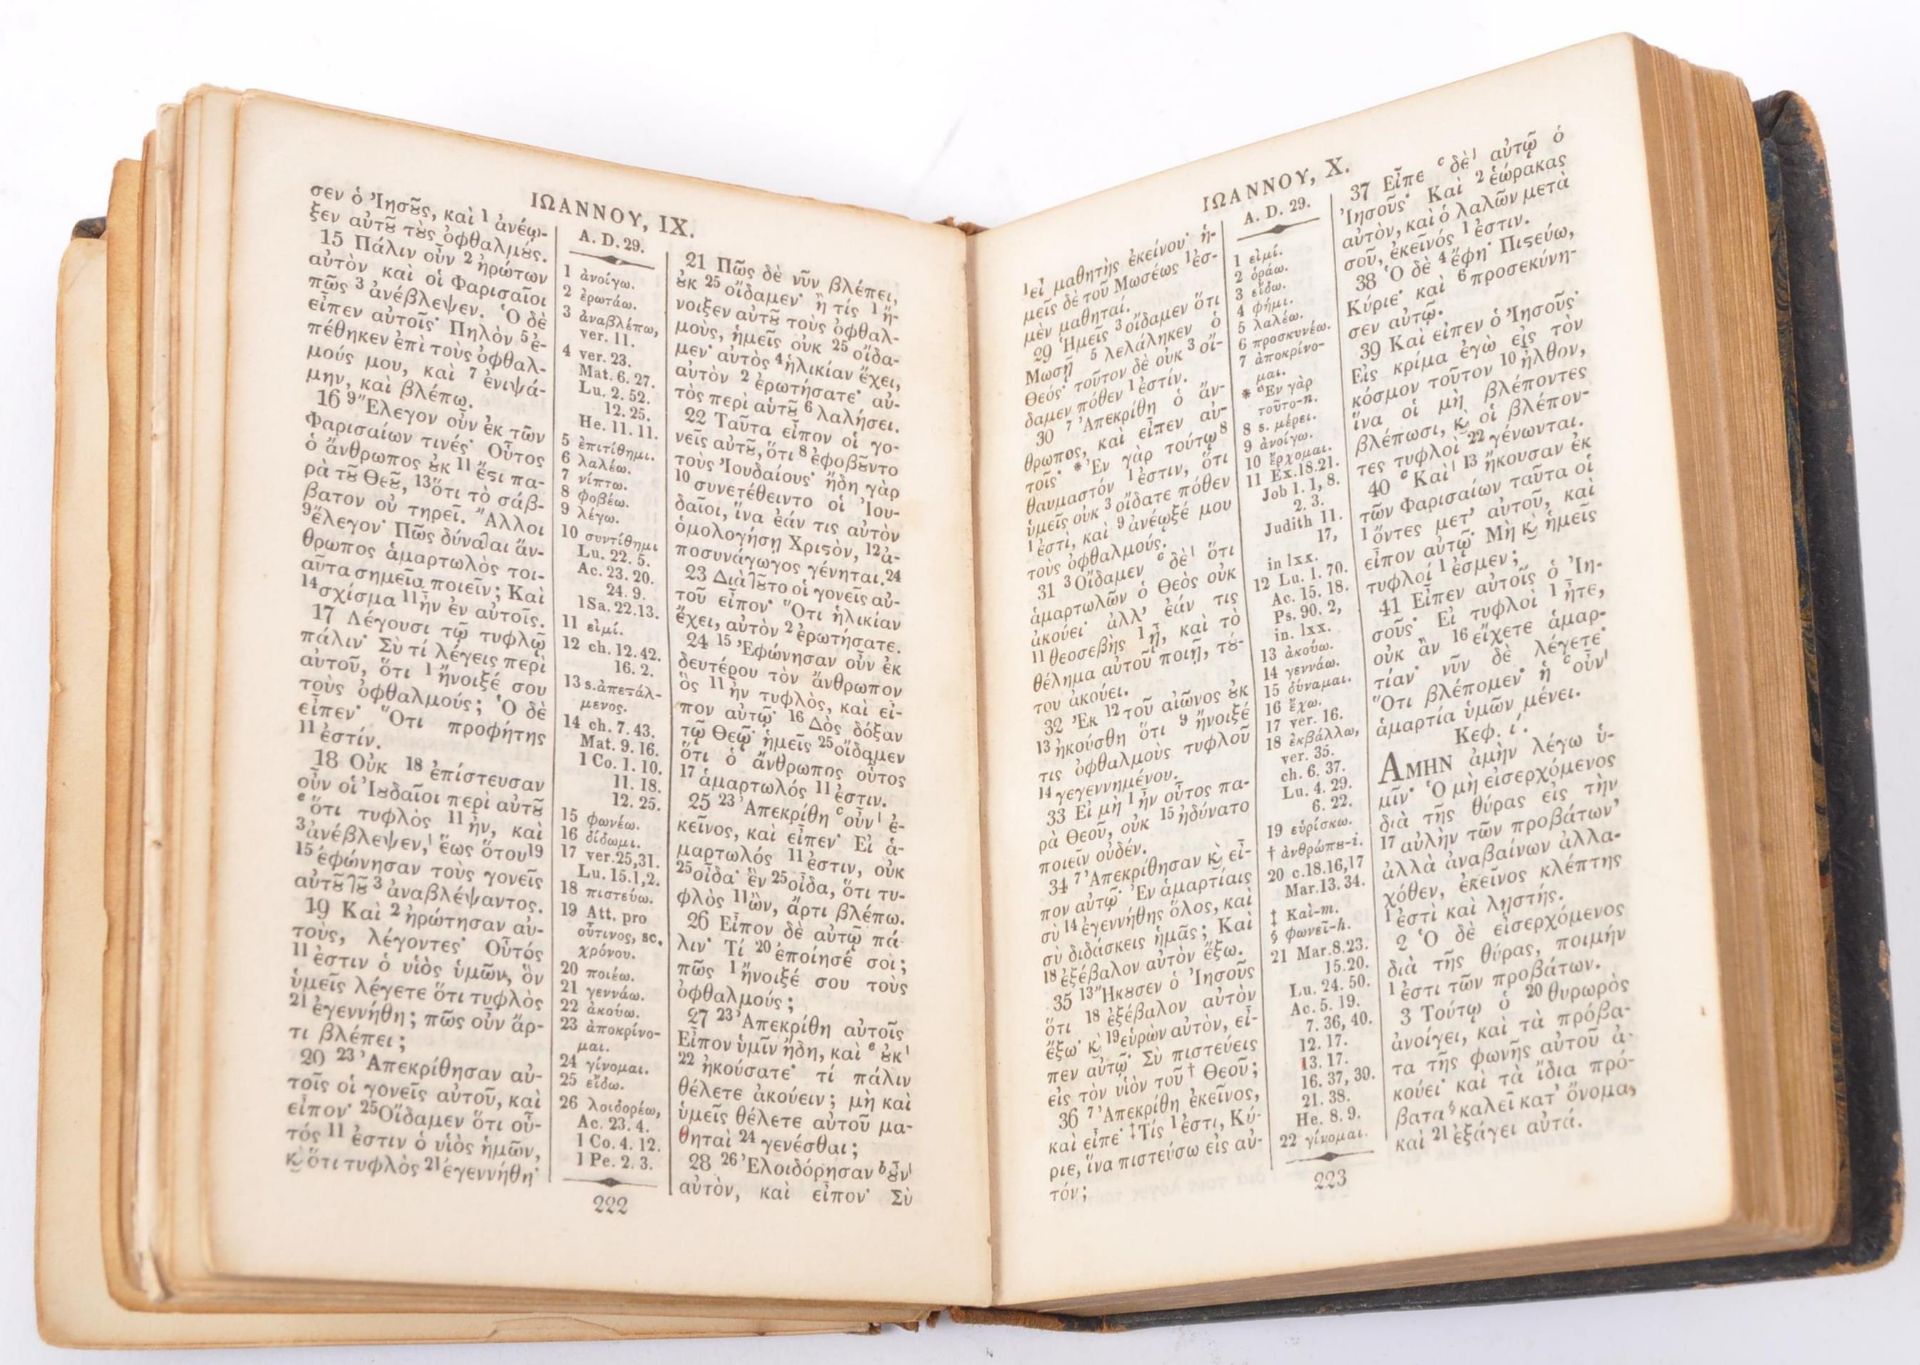 ΙΩΑΝΝΟΥ, IX.
σεν ὁ Ἰησȣ͂ς, καὶ 1 ἀνέῳ-
ξεν αὐτȣ͂ τȣ̀ς ὀφθαλμȣ́ς.
15 Πάλιν οὖν 2 ἠρώτων
αὐτὸν καὶ οἱ Φαρισαῖοι
πῶς 3 ἀνέβλεψεν. Ὁ δὲ
εἶπεν αὐτοῖς· Πηλὸν 5 ἐ-
πέθηκεν ἐπὶ τοὺς ὀφθαλ-
μούς μου, καὶ 7 ἐνιψά-
μην, καὶ βλέπω.
16 9 Ἔλεγον οὖν ἐκ τῶν
Φαρισαίων τινές· Οὗτος
ὁ ἄνθρωπος ȣ̓κ 11 ἔϛι πα-
ρὰ τȣ͂ Θεȣ͂, 13 ὅτι τὸ σάβ-
βατον οὐ τηρεῖ. Ἄλλοι
9 ἔλεγον· Πῶς δύναται ἄν-
θρωπος ἁμαρτωλὸς τοι-
αῦτα σημεῖα ποιεῖν; Καὶ
14 σχίσμα 11 ἦν ἐν αὐτοῖς.
17 Λέγουσι τῷ τυφλῷ
πάλιν· Σὺ τί λέγεις περὶ
αὐτοῦ, ὅτι 1 ἤνοιξέ σου
τοὺς ὀφθαλμούς; Ὁ δὲ
εἶπεν· Ὅτι προφήτης
11 ἐστίν.
18 Οὐκ 18 ἐπίστευσαν
οὖν οἱ Ἰȣδαῖοι περὶ αὐτȣ͂
ᵉ ὅτι τυφλὸς 11 ἦν, καὶ
3 ἀνέβλεψεν,ˡ ἕως ὅτου 19
15 ἐφώνησαν τοὺς γονεῖς
αὐτȣ͂ τȣ͂ 3 ἀναβλέψαντος.
19 Καὶ 2 ἠρώτησαν αὐ-
τοὺς, λέγοντες· Οὗτός
11 ἐστιν ὁ υἱὸς ὑμῶν, ὃν
ὑμεῖς λέγετε ὅτι τυφλὸς
21 ἐγεννήθη; πῶς οὖν ἄρ-
τι βλέπει;
20 23 Ἀπεκρίθησαν αὐ-
τοῖς οἱ γονεῖς αὐτοῦ, καὶ
εἶπον· 25 Οἴδαμεν ὅτι οὗ-
τός 11 ἐστιν ὁ υἱὸς ἡμῶν,
ϗ ὅτι τυφλὸς 21 ἐγεννήθη·
A. D. 29.
1 ἀνοίγω.
2 ἐρωτάω.
3 ἀναβλέπω,
ver. 11.
4 ver. 23.
Mat. 6. 27.
Lu. 2. 52.
12. 25.
He. 11. 11.
5 ἐπιτίθημι.
6 λαλέω.
7 νίπτω.
8 φοβέω.
9 λέγω.
10 συντίθημι
Lu. 22. 5.
Ac. 23. 20.
24. 9.
1Sa. 22. 13.
11 εἰμί.
12 ch. 12. 42.
16. 2.
13 s. ἀπεταλ-
μενος.
14 ch. 7. 43.
Mat. 9. 16.
1 Co. 1. 10.
11. 18.
12. 25.
15 φωνέω.
16 δίδωμι.
17 ver. 25, 31.
Lu. 15. 1, 2.
18 πιστεύω.
19 Att. pro
οὗτινος, sc.
χρόνου.
20 ποιέω.
21 γεννάω.
22 ἀκούω.
23 ἀποκρίνο-
μαι.
24 γίνομαι.
25 εἴδω.
26 λοιδορέω,
Ac. 23. 4.
1 Co. 4. 12.
1 Pe. 2. 3.
222
21 Πῶς δὲ νῦν βλέπει,
ȣ̓κ 25 οἴδαμεν· ἢ τίς 1 ἤ-
νοιξεν αὐτȣ͂ τοὺς ὀφθαλ-
μοὺς, ἡμεῖς οὐκ 25 οἴδα-
μεν· αὐτὸς 4 ἡλικίαν ἔχει,
αὐτὸν 2 ἐρωτήσατε· αὐ-
τὸς περὶ αὑτȣ͂ 6 λαλήσει.
22 Ταῦτα εἶπον οἱ γο-
νεῖς αὐτȣ͂, ὅτι 8 ἐφοβȣ͂ντο
τοὺς Ἰουδαίους· ἤδη γὰρ
10 συνετέθειντο οἱ Ἰου-
δαῖοι, ἵνα ἐάν τις αὐτὸν
ὁμολογήσῃ Χριϛὸν, 12 ἀ-
ποσυνάγωγος γένηται. 24
23 Διὰ τȣ͂το οἱ γονεῖς αὐ-
τοῦ εἶπον· Ὅτι ἡλικίαν
ἔχει, αὐτὸν 2 ἐρωτήσατε.
24 15 Ἐφώνησαν οὖν ἐκ
δευτέρου τὸν ἄνθρωπον
ὃς 11 ἦν τυφλὸς, καὶ εἶ-
πον αὐτῷ· 16 Δὸς δόξαν
τῷ Θεῷ· ἡμεῖς 25 οἴδαμεν
ὅτι ὁ ἄνθρωπος οὗτος
17 ἁμαρτωλός 11 ἐστιν.
25 23 Ἀπεκρίθη ᵉ οὖνˡ ἐ-
κεῖνος, καὶ εἶπεν· Εἰ ἁ-
μαρτωλός 11 ἐστιν, οὐκ
25 οἶδα· ἓν 25 οἶδα, ὅτι τυ-
φλὸς 11 ὢν, ἄρτι βλέπω.
26 Εἶπον δὲ αὐτῷ πά
λιν· Τί 20 ἐποίησέ σοι;
πῶς 1 ἤνοιξέ σου τοὺς
ὀφθαλμούς;
27 23 Ἀπεκρίθη αὐτοῖς·
Εἶπον ὑμῖν ἤδη, καὶ ᵉ ȣ̓κˡ
22 ἠκούσατε· τί πάλιν
θέλετε ἀκούειν; μὴ καὶ
ὑμεῖς θέλετε αὐτοῦ μα-
θηταὶ 24 γενέσθαι;
28 26 Ἐλοιδόρησαν ᵇ ȣ̓͂νˡ
αὐτὸν, καὶ εἶπον· Σὺ
ΙΩΑΝΝΟΥ, X.
1 εἶ μαθητὴς ἐκείνου· ἡ-
μεῖς δὲ τοῦ Μωσέως 1 ἐσ-
μὲν μαθηταί.
29 Ἡμεῖς 3 οἴδαμεν ὅτι
Μωσῇ 5 λελάληκεν ὁ
Θεός· τοῦτον δὲ οὐκ 3 οἴ-
δαμεν πόθεν 1 ἐστίν.
30 7 Ἀπεκρίθη ὁ ἄν-
θρωπος, καὶ εἶπεν αὐ-
τοῖς· * Ἐν γὰρ τούτῳ 8
θαυμαστόν 1 ἐστιν, ὅτι
ὑμεῖς οὐκ 3 οἴδατε πόθεν
1 ἐστὶ, καὶ 9 ἀνέῳξέ μου
τοὺς ὀφθαλμούς.
31 3 Οἴδαμεν ᶜ δὲˡ ὅτι
ἁμαρτωλῶν ὁ Θεὸς οὐκ
ἀκούει· ἀλλ' ἐάν τις
11 θεοσεβὴς 1 ᾖ, καὶ τὸ
θέλημα αὐτοῦ ποιῇ, τού-
του ἀκούει.
32 Ἐκ 12 τοῦ αἰῶνος ȣ̓κ
13 ἠκούσθη ὅτι 9 ἤνοιξέ
τις ὀφθαλμοὺς τυφλοῦ
14 γεγεννημένου.
33 Εἰ μὴ 1 ἦν οὗτος πα-
ρὰ Θεοῦ, οὐκ 15 ἠδύνατο
ποιεῖν οὐδέν.
34 7 Ἀπεκρίθησαν ϗ εἶ-
πον αὐτῷ· Ἐν ἁμαρτίαις
σὺ 14 ἐγεννήθης ὅλος, καὶ
σὺ διδάσκεις ἡμᾶς; Καὶ
18 ἐξέβαλον αὐτὸν ἔξω.
35 13 Ἤκȣσεν ὁ Ἰησοῦς
ὅτι 18 ἐξέβαλον αὐτὸν
ἔξω· ϗ 19 εὑρὼν αὐτὸν, εἶ-
πεν αὐτῷ· Σὺ πιστεύεις
εἰς τὸν υἱὸν τοῦ † Θεοῦ;
36 7 Ἀπεκρίθη ἐκεῖνος,
καὶ εἶπε· ‡ Τίς 1 ἐστι, Κύ-
ριε, ἵνα πιστεύσω εἰς αὐ-
τόν;
A. D. 29.
1 εἰμί.
2 ὁράω.
3 εἴδω.
4 φημι.
5 λαλέω.
6 προσκυνέω.
7 ἀποκρίνο-
μαι.
* Ἐν γὰρ
τοῦτο-n.
8 s. μέρει.
9 ἀνοίγω.
10 ἔρχομαι.
11 Ex. 18. 21.
Job 1. 1, 8.
2. 3.
Judith 11.
17,
in lxx.
12 Lu. 1. 70.
Ac. 15. 18.
Ps. 90. 2,
in. lxx.
13 ἀκούω.
14 γεννάω.
15 δύναμαι.
16 ἔχω.
17 ver. 16.
18 ἐκβάλλω,
ver. 35.
ch. 6. 37.
Lu. 4. 29.
6. 22.
19 εὑρίσκω.
† ἀνθρώπȣ-i.
20 c. 18. 16, 17
Mar. 13. 34.
‡ Καὶ-m.
§ φωνεῖ-h.
21 Mar. 8. 23.
15. 20.
Lu. 24. 50.
Ac. 5. 19.
7. 36, 40.
12. 17.
13. 17.
16. 37, 39.
21. 38.
He. 8. 9.
22 γίνομαι.
223
37 Εἶπε ᶜ δὲˡ αὐτῷ ὁ
Ἰησοῦς· Καὶ 2 ἑώρακας
αὐτὸν, καὶ ὁ λαλῶν μετὰ
σοῦ, ἐκεῖνός 1 ἐστιν.
38 Ὁ δὲ 4 ἔφη· Πιϛεύω,
Κύριε· καὶ 6 προσεκύνη-
σεν αὐτῷ.
39 Καὶ εἶπεν ὁ Ἰησοῦς·
Εἰς κρίμα ἐγὼ εἰς τὸν
κόσμον τοῦτον 10 ἦλθον,
ἵνα οἱ μὴ βλέποντες
βλέπωσι, ϗ οἱ βλέπον-
τες τυφλοὶ 22 γένωνται.
40 ᶜ Καὶˡ 13 ἤκουσαν ἐκ
τῶν Φαρισαίων ταῦτα οἱ
1 ὄντες μετ' αὐτοῦ, καὶ
εἶπον αὐτῷ· Μὴ ϗ ἡμεῖς
τυφλοί 1 ἐσμεν;
41 Εἶπεν αὐτοῖς ὁ Ἰη-
σοῦς· Εἰ τυφλοὶ 1 ἦτε,
οὐκ ἂν 16 εἴχετε ἁμαρ-
τίαν· νῦν δὲ λέγετε·
Ὅτι βλέπομεν· ἡ ᶜ οὖνˡ
ἁμαρτία ὑμῶν μένει.
Κεφ. ί.
ΑΜΗΝ ἀμὴν λέγω ὑ-
μῖν· Ὁ μὴ εἰσερχόμενος
διὰ τῆς θύρας εἰς τὴν
17 αὐλὴν τῶν προβάτων·
ἀλλὰ ἀναβαίνων ἀλλα-
χόθεν, ἐκεῖνος κλέπτης
1 ἐστὶ καὶ λῃστής.
2 Ὁ δὲ εἰσερχόμενος
διὰ τῆς θύρας, ποιμήν
1 ἐστι τῶν προβάτων.
3 Τούτῳ ὁ 20 θυρωρὸς
ἀνοίγει, καὶ τὰ πρόβα-
τα τῆς φωνῆς αὐτοῦ ἀ-
κούει· καὶ τὰ ἴδια πρό-
βατα § καλεῖ κατ' ὄνομα,
καὶ 21 ἐξάγει αὐτά.